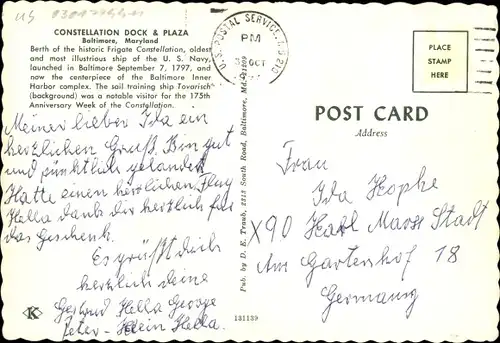 US
CONSTELLATION DOCK & PLAZA
Baltimore, Maryland
Berth of the historic Frigate Constellation, oldest
and most illustrious ship of the U. S. Navy,
launched in Baltimore September 7, 1797, and
now the centerpiece of the Baltimore Inner
Harbor complex. The sail training ship Tovarisch
(background) was a notable visitor for the 175th
Anniversary Week of the Constellation.
U.S. POSTAL SERVICE, MD. 210
PM
OCT
PLACE
STAMP
HERE
POST CARD
Address
Meine lieber Ida ein
herzlichen Gruß. Bin gut
und pünktlich gelandet
Hatte einen herrlichen Flug
Hella dankt dir herzlich für
das Geschenk.
Es grüßt dich
herzlich deine
Gertrud Hella George
Peter - Hein Hella.
Pub. by D. E. Traub, 2313 South Road, Baltimore, Md. 21209
Frau
Ida Hopke
X90 Karl Marx Stadt
Am Gartenhof 18
Germany
K
131139